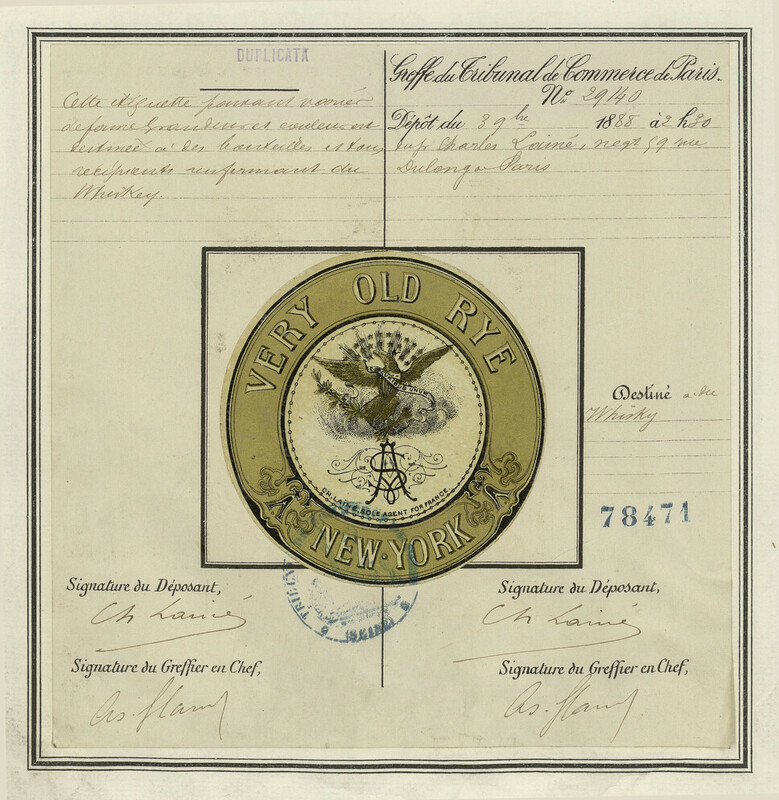 DUPLICATA
Cette étiquette pouvant varier
de forme grandeur et couleur est
destinée à des bouteilles et tous
récipients renfermant du
Whiskey.
Greffe du Tribunal de Commerce de Paris.
N° 29140
Dépôt du 3 9bre 1888 à 2h30
Charles Lainé, negt 59 rue
Dulong Paris
VERY OLD RYE
CH. LAINÉ SOLE AGENT FOR FRANCE
NEW·YORK
Destiné a du
Whisky
78471
Signature du Déposant,
Ch Lainé
Signature du Greffier en Chef,
Signature du Déposant,
Ch Lainé
Signature du Greffier en Chef,